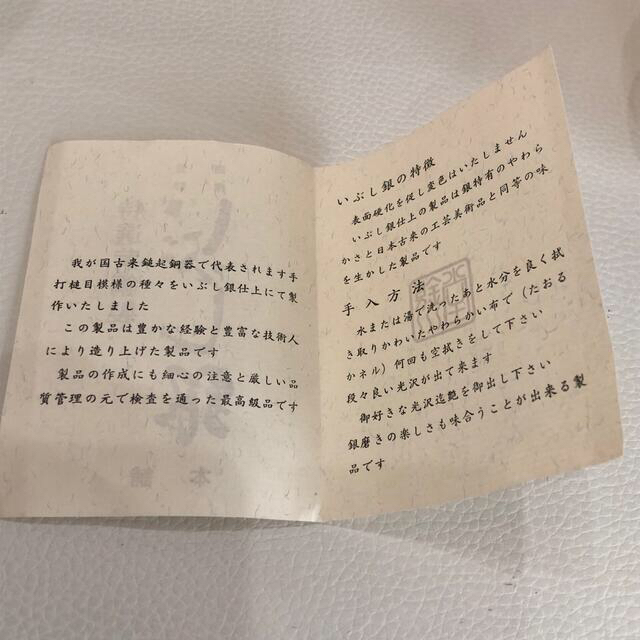 我が国古来鎚起銅器で代表されます手
打槌目模様の種々をいぶし銀仕上にて製
作いたしました
この製品は豊かな経験と豊富な技術人
により造り上げた製品です
製品の作成にも細心の注意と厳しい品
質管理の元で検査を通った最高級品です
いぶし銀の特徴
表面硬化を促し変色はいたしません
いぶし銀仕上の製品は銀特有のやわら
かさと日本古来の工芸美術品と同等の味
を生かした製品です
手入方法
水または湯で洗ったあと水分を良く拭
き取りかわいたやわらかい布で（たおる
かネル）何回も空拭きをして下さい
段々良い光沢が出て来ます
御好きな光沢迄艶を御出し下さい
銀磨きの楽しさも味合うことが出来る製
品です
本
舗